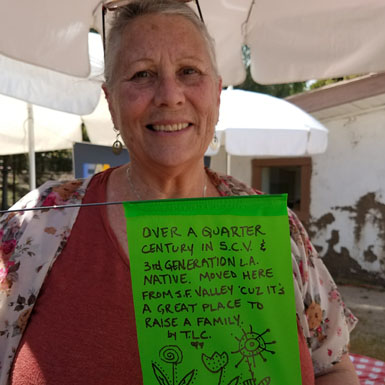 OVER A QUARTER
CENTURY IN S.C.V. &
3rd GENERATION L.A.
NATIVE. MOVED HERE
FROM S.F. VALLEY 'CUZ IT'S
A GREAT PLACE TO
RAISE A FAMILY.
by T.L.C.